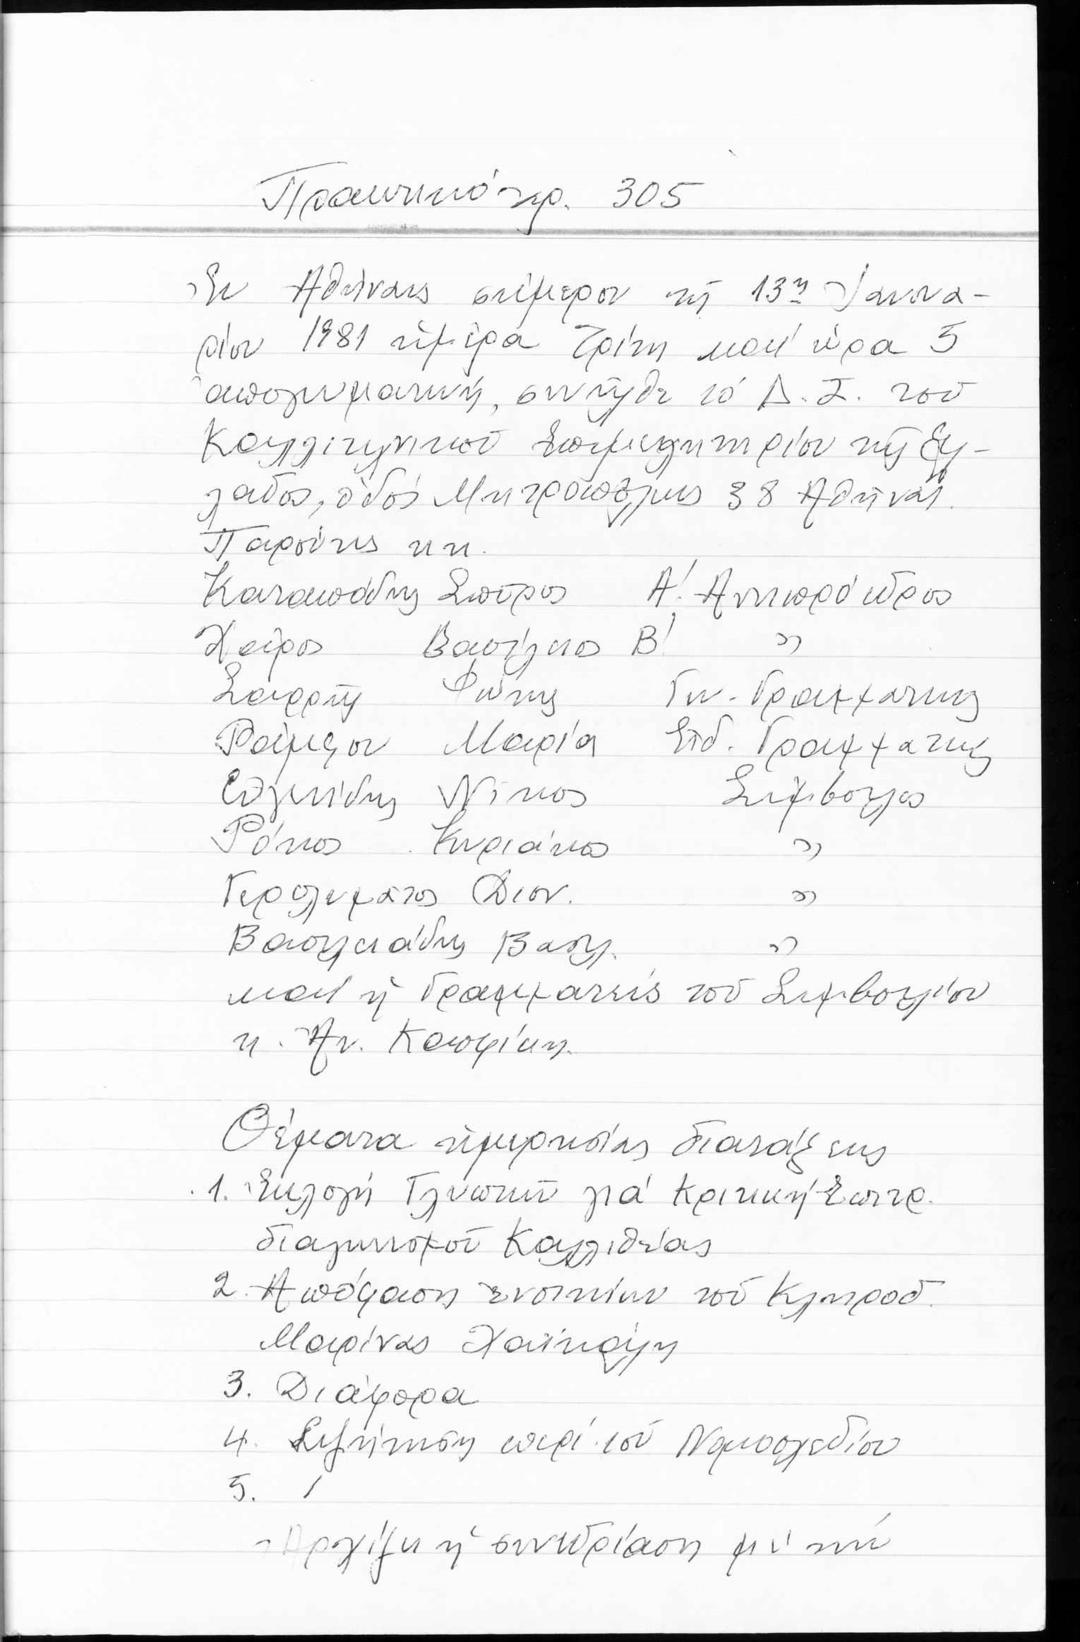 Πρακτικό ὑπ' ἀρ. 305
Ἐν Ἀθήναις σήμερον τῇ 13η Ἰανουα-
ρίου 1981 ἡμέρα Τρίτη καί ὥρα 5
ἀπογευματινή, συνῆλθε τό Δ.Σ. τοῦ
Καλλιτεχνικοῦ Ἐπιμελητηρίου τῆς Ἑλ-
λάδος, ὁδός Μητροπόλεως 38 Ἀθῆναι.
Παρόντες κ.κ.
Καταπόδης Σπῦρος Α! Ἀντιπρόεδρος
Χάρος Βασίλειος Β! "
Σαρρῆς Φώτης Γεν. Γραμματεύς
Ράμφου Μαρία Εἰδ. Γραμματεύς
Νίκος Σύμβουλος
Ρόκος Κυριάκος "
Γερολυμάτος Διον. "
Βασιλειάδης Βασιλ. "
καί ἡ Γραμματεύς τοῦ Συμβουλίου
κ. Ἀν. Καπρίκη.
Θέματα ἡμερησίας διατάξεως
1. Ἐκλογή Γλυπτῶν γιά Κριτική Ἐπιτρ.
διαγωνισμοῦ Καλλιθέας
2. Ἀπόφαση ἐνοικίων τοῦ Κληροδ.
Μαρίνας
3. Διάφορα
4. Συζήτηση περί τοῦ Νομοσχεδίου
5. /
Ἀρχίζει ἡ συνεδρίαση μέ τήν